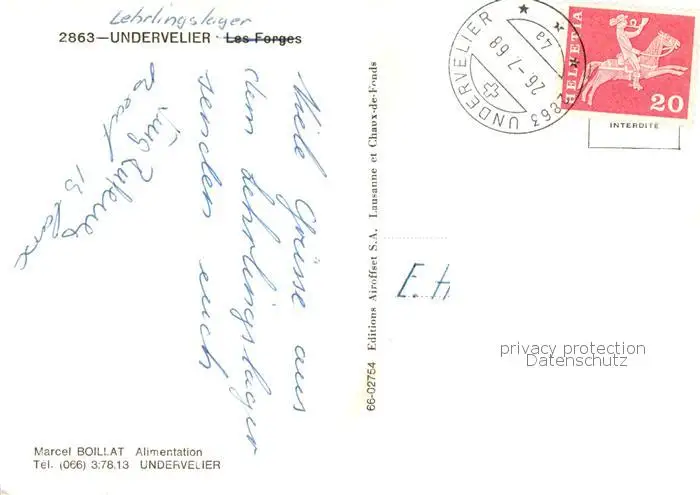 Lehrlingslager
2863—UNDERVELIER · Les Forges
Viele Grüsse aus
dem Lehrlingslager
senden euch
Marcel BOILLAT Alimentation
Tél. (066) 3.78.13 UNDERVELIER
66-02754 Editions Airoffset S.A. Lausanne et Chaux-de-Fonds
2863 UNDERVELIER
26-7.68
4a
HELVETIA
20
INTERDITE
E.H
privacy protection
Datenschutz